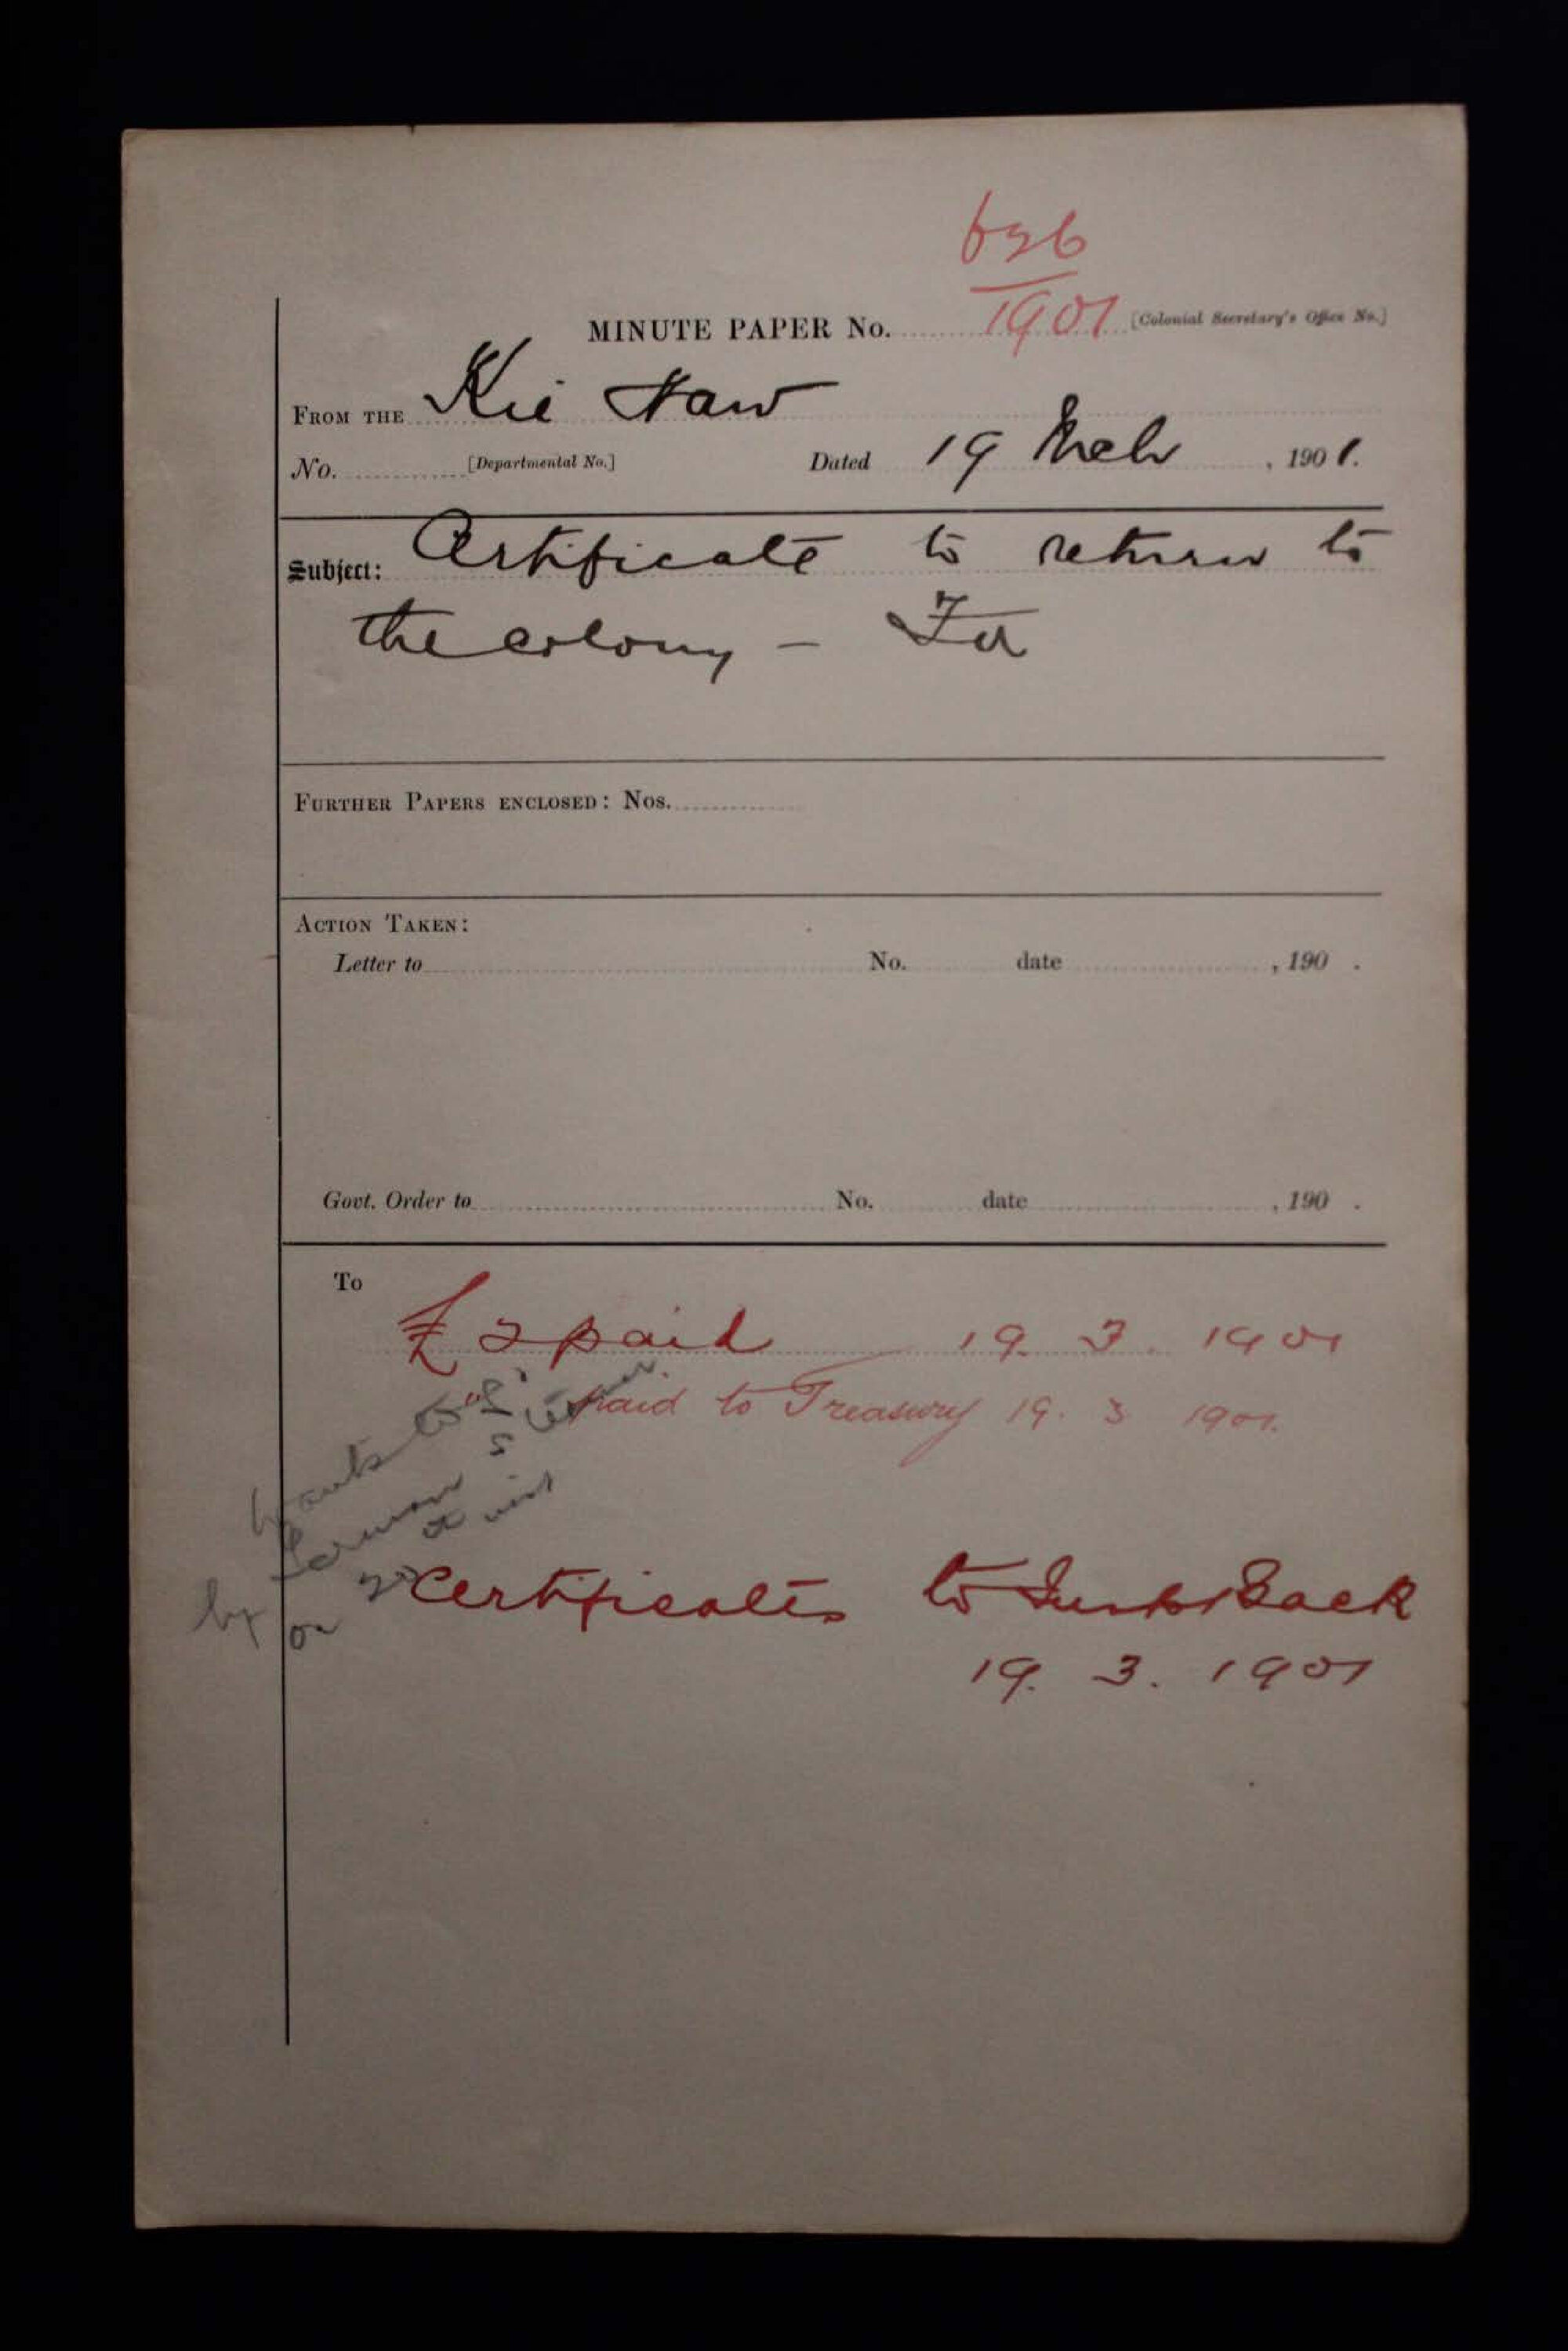 1901
MINUTE PAPER No. [Colonial Secretary's Office No.]
FROM THE Kie Haw
No. [Departmental No.] Dated 19 Mch , 1901.
Subject: Certificate to return to
the colony - For
FURTHER PAPERS ENCLOSED: Nos.
ACTION TAKEN:
Letter to No. date , 190 .
Govt. Order to No. date , 190 .
To
£ paid 19. 3. 1901
paid to Treasury 19. 3 1901.
wants to
Certificates to Back
19. 3. 1901